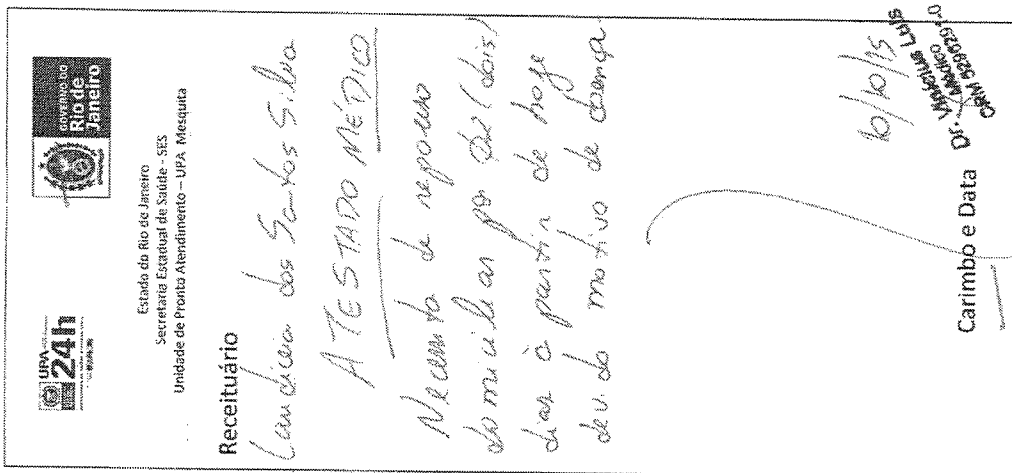 UPA
24h
GOVERNO DO
Rio de
Janeiro
Estado do Rio de Janeiro
Secretaria Estadual de Saúde - SES
Unidade de Pronto Atendimento – UPA Mesquita
Receituário
Laudiceia dos Santos Silva
ATESTADO MÉDICO
Necessita de repouso
domiciliar por 02 (dois)
dias à partir de hoje
devido motivo de doença.
10/10/15
Dr. Vinicius Luis
Médico
CRM
Carimbo e Data